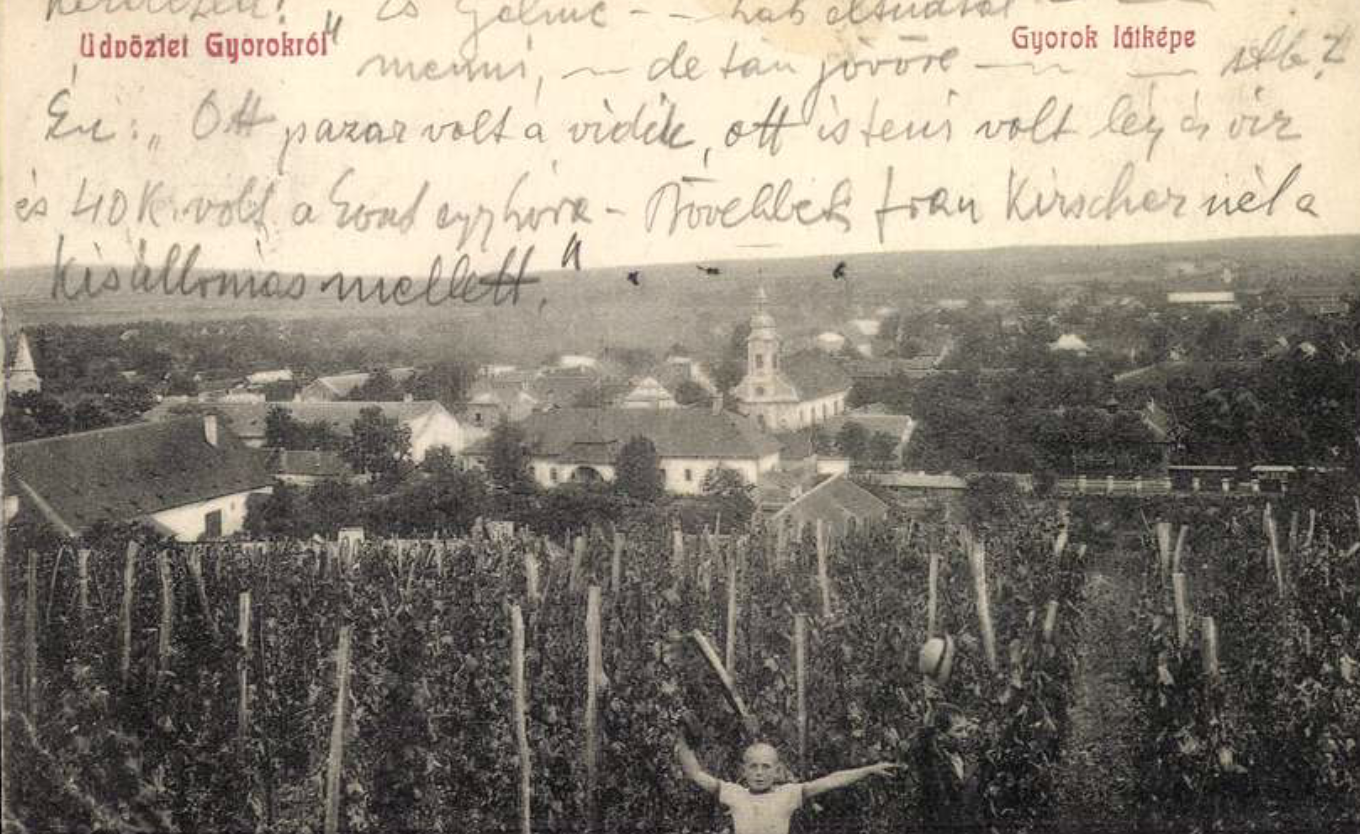 és
Üdvözlet Gyorokról
Gyorok látképe
menni, — de tán jövőre — — stb.?
Én: „Ott pazar volt a vidék, ott isteni volt lég és víz
és 40 K. volt a egy hóra - Bővebbet frau Kirschernél a
kisállomás mellett."